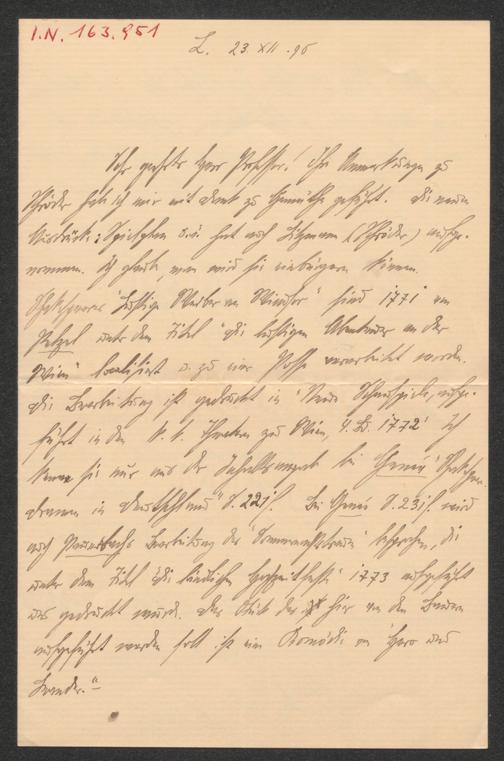 I.N. 163.951
L. 23. XII. 96
Sehr geehrter Herr Professor! Ihre Anmerkungen zu
Schröder habe ich mir mit Dank zu Gemüthe geführt. Die neuen
Ausdrücke: Spielplan u.ä. hat auch Litzmann (Schröder) aufge-
nommen. Ich glaube, man wird sie einbürgern können.
Shakespeares "Lustige Weiber von Windsor" sind 1771 von
Pelzel unter dem Titel "Die lustigen Abenteuer an der
Wien" localisiert u. zu einer Posse verarbeitet worden.
Die Bearbeitung ist gedruckt in "Neue Schauspiele, aufge-
führt in den K. K. Theatern zu Wien, 4. Bd. 1772" Ich
kenne sie nur aus der Inhaltsangabe bei Genée "Shakesp.
dramen in Deutschland" S. 221f. Bei Genée S. 231f. wird
auch Pauersbachs Bearbeitung des "Sommernachtstraum" besprochen, die
unter dem Titel "Die ländlichen Hochzeitsfeste" 1773 aufgeführt
und gedruckt wurde. Das Stück das hier von den Bauern
aufgeführt werden soll ist eine Komödie von Hero und
Leander."